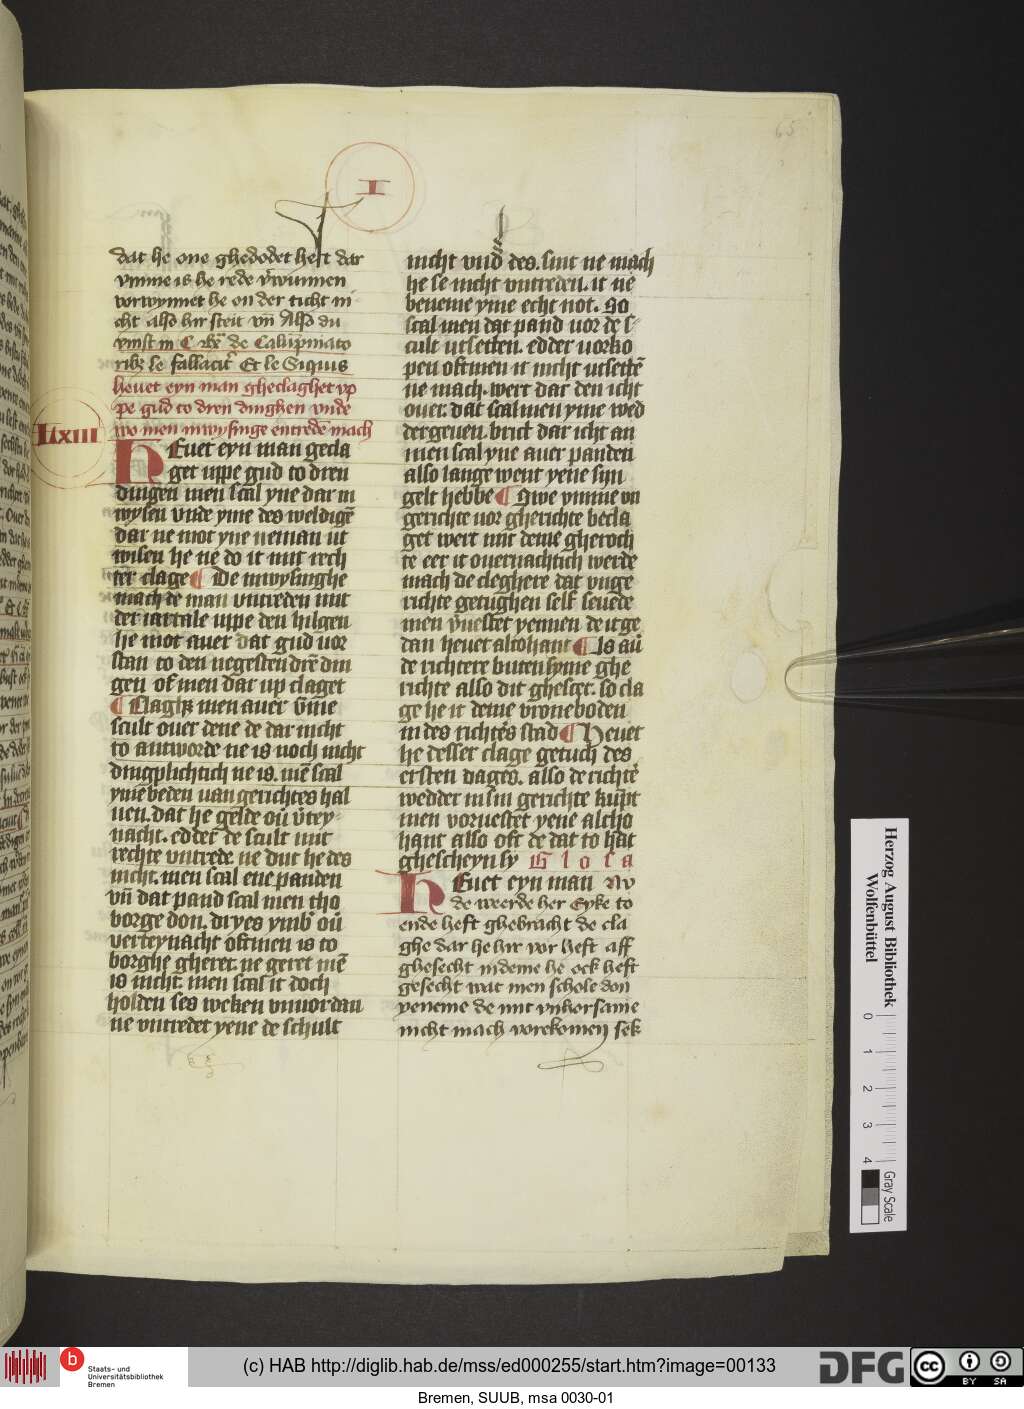 65
I
dat he one ghedodet heft dar
vmme is he rede v̄wunnen
vorwynnet he on der ticht ni
cht also hir steit vn̄ Also du
vinst in C
heuet eyn man gheclaghet vp
pe gud to dren dinghen vnde
wo men inwysinge entrede mach
LXIII
HEuet eyn man gecla
get uppe gud to dren
dingen men scal yne dar in
wysen vnde yme des weldigē
dar ne mot yne neman ut
wisen he ne do it mit rech
ter clage ¶ De inwysinghe
mach de man vntreden mit
der iartale uppe den hilgen
he mot auer dat gud vor
stan to den negesten drē din
gen of men dar up claget
¶ men auer v̄me
scult ouer dene de dar nicht
to antworde ne is noch nicht
dingplichtich ne is. mē scal
yme beden uan gerichtes hal
uen. dat he gelde ou̅ v̄tey
nacht. edder de scult mit
rechte vntrede. ne dut he des
nicht. men scal ene panden
vn̄ dat pand scal men tho
borge don. dryes ymb̄ ou̅
verteynacht oftmen is to
borghe gheret. ne geret mē
is nicht. men scal it doch
holden ses weken vnuordan
ne vntredet yene de schult
nicht vnd̄ des. sint ne mach
he se nicht vntreden. it ne
beneme yme echt not. So
scal men dat pand vor de s
cult utsetten. edder uorko
pen oftmen it nicht utsettē
ne mach. wert dar den icht
ouer. dat scal men yme wed
der geuen. brict dar icht an
men scal yne auer panden
also lange went yene syn
gelt hebbe ¶ Swe vmme vn
gerichte uor gherichte becla
get wert mit deme gheroch
te eer it ouernachtich werde
mach de cleghere dat vnge
richte getughen self seuede
men v̄uestet yennen de it ge
dan heuet altohant ¶ Is au̅
de richtere buten syme ghe
richte also dit ghesce̅t. so cla
ge he it deme vroneboden
in des richters stad ¶ Heuet
he desser clage getuch des
ersten dages. also de richt̄e
wedder in sin gerichte kūpt
men voruestet yene altho
hant also oft de dat to hāt
ghescheyn sy Glosa
HEuet eyn man Nv
de weerde her Eyke to
ende heft ghebracht de cla
ghe dar he hir vor heft aff
ghesecht indeme he ock heft
gesecht wat men schole don
yeneme de mit vnhorsame
nicht mach vorekomen sek
Herzog August Bibliothek
Wolfenbüttel
0 1 2 3 4
Gray Scale
b
Staats- und
Universitätsbibliothek
Bremen
(c) HAB http://diglib.hab.de/mss/ed000255/start.htm?image=00133
DFG
cc BY SA
Bremen, SUUB, msa 0030-01